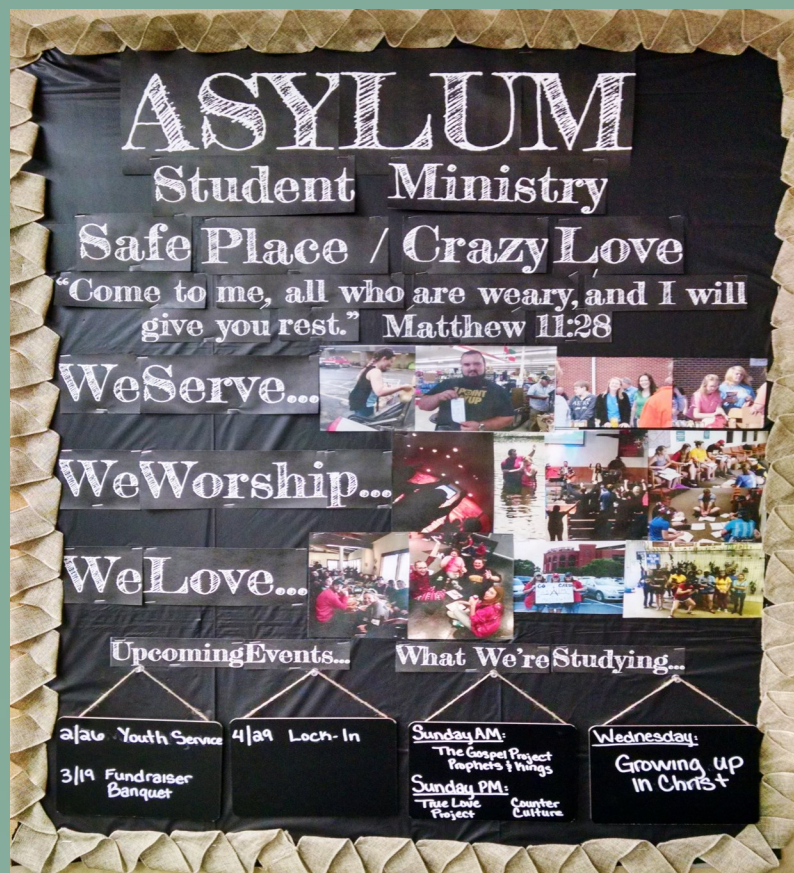 ASYLUM
Student Ministry
Safe Place / Crazy Love
“Come to me, all who are weary, and I will
give you rest.” Matthew 11:28
We Serve...
We Worship...
We Love...
Upcoming Events...
What We're Studying...
2/26 Youth Service
3/19 Fundraiser
Banquet
4/29 Lock-In
Sunday AM:
The Gospel Project
Prophets & Kings
Sunday PM:
True Love
Project
Counter
Culture
Wednesday:
Growing up
in Christ